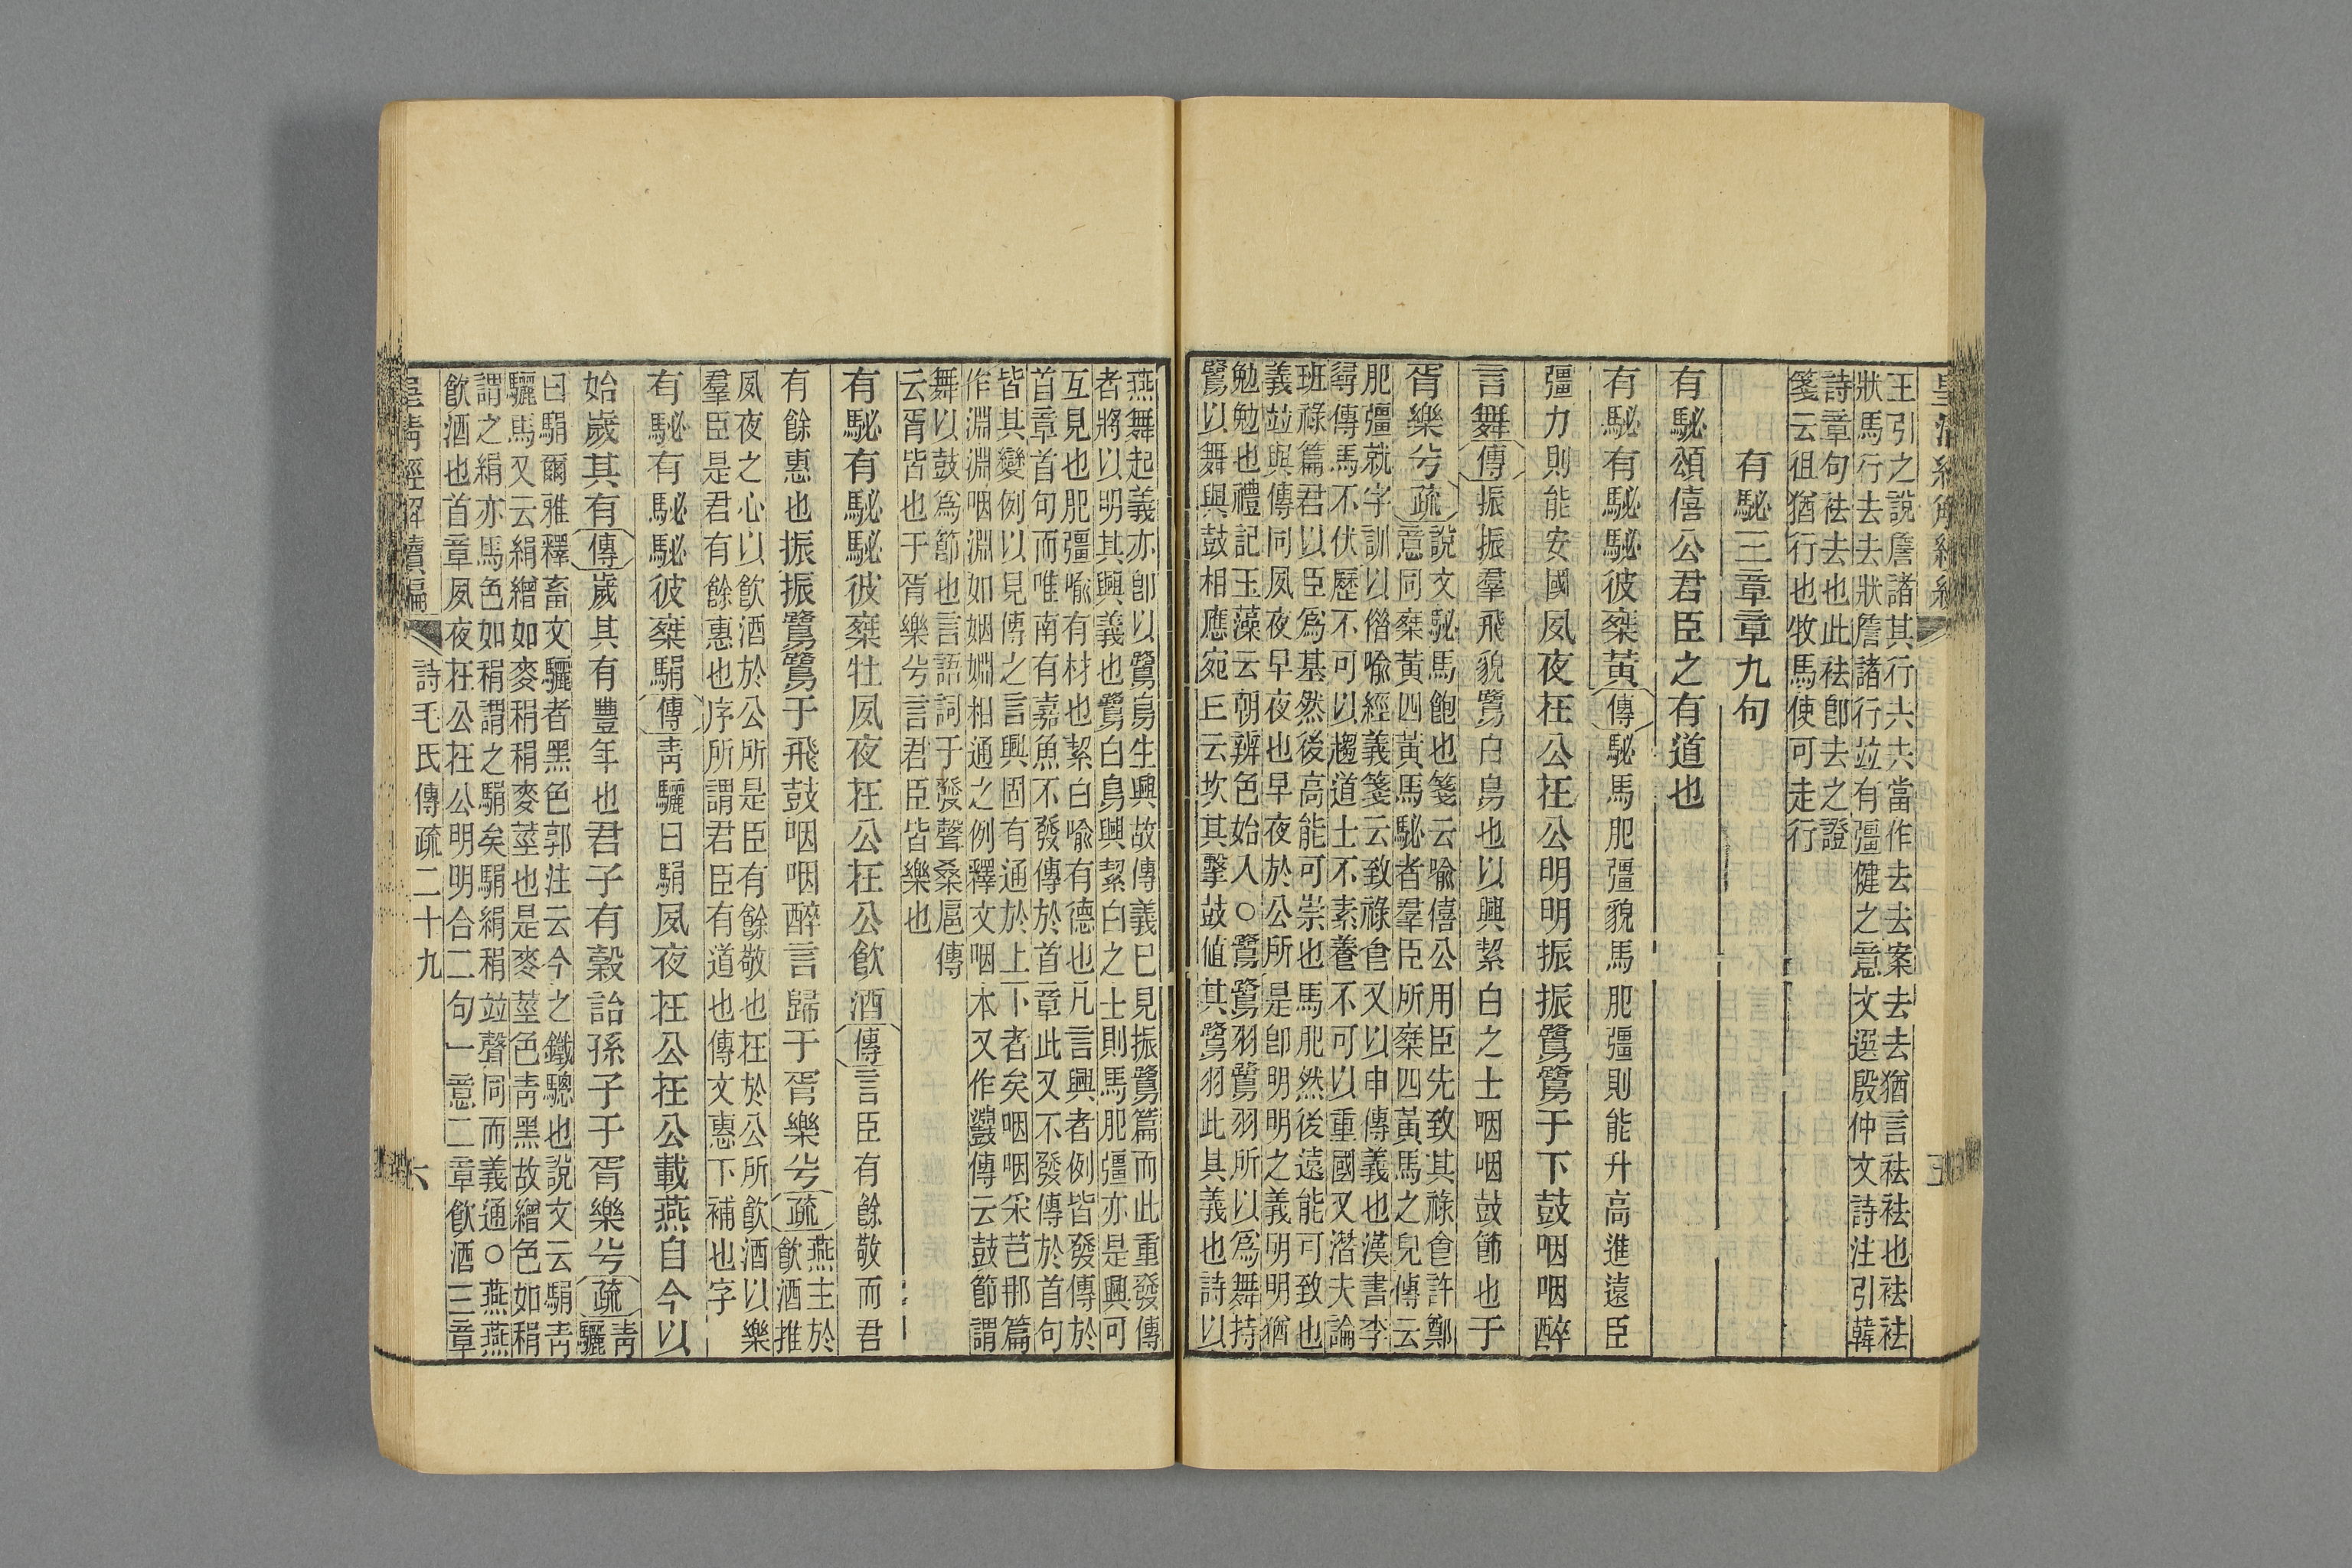 王引之說詹諸其行㚎㚎當作去去案去去猶言袪袪也袪袪
狀馬行去去狀詹諸行竝有彊健之意文選殷仲文詩注引韓
詩章句袪去也此袪卽去之證
箋云徂猶行也牧馬使可走行
有駜三章章九句
有駜頌僖公君臣之有道也
有駜有駜駜彼椉黃傳駜馬肥彊貌馬肥彊則能升高進遠臣
彊力則能安國夙夜在公在公明明振振鷺鷺于下鼓咽咽醉
言舞傳振振羣飛貌鷺白鳥也以興絜白之士咽咽鼓節也于
胥樂兮疏說文駜馬飽也箋云喩僖公用臣先致其祿食許鄭
意同椉黃四黃馬駜者羣臣所椉四黃馬之皃傳云
肥彊就字訓以僭喩經義箋云致祿食又以申傳義也漢書李
尋傳馬不伏歷不可以趨道士不素養不可以重國又潛夫論
班祿篇君以臣爲基然後高能可崇也馬肥然後遠能可致也
義竝與傳同夙夜早夜也早夜於公所是卽明明之義明明猶
勉勉也禮記玉藻云朝辨色始入○鷺鷺羽鷺羽所以爲舞持
鷺以舞與鼓相應宛丘云坎其擊鼓値其鷺羽此其義也詩以
燕舞起義亦卽以鷺鳥生興故傳義已見振鷺篇而此重發傳
者將以明其興義也鷺白鳥興絜白之士則馬肥彊亦是興可
互見也肥彊喩有材也絜白喩有德也凡言興者例皆發傳於
首章首句而唯南有嘉魚不發傳於首章此又不發傳於首句
皆其變例以見傳之言興固有通於上下者矣咽咽采芑那篇
作淵淵咽淵如姻婣相通之例釋文咽本又作鼝傳云鼓節謂
舞以鼓爲節也言語詞于發聲桑扈傳
云胥皆也于胥樂兮言君臣皆樂也
有駜有駜駜彼椉牡夙夜在公在公飮酒傳言臣有餘敬而君
有餘惠也振振鷺鷺于飛鼓咽咽醉言歸于胥樂兮疏燕主於
飮酒推
夙夜之心以飮酒於公所是臣有餘敬也在於公所飮酒以樂
羣臣是君有餘惠也序所謂君臣有道也傳文惠下補也字
有駜有駜駜彼椉駽傳靑驪曰駽夙夜在公在公載燕自今以
始歲其有傳歲其有豐年也君子有穀詒孫子于胥樂兮疏靑
驪
曰駽爾雅釋畜文驪者黑色郭注云今之鐵驄也說文云駽靑
驪馬又云絹繒如麥稍稍麥莖也是麥莖色靑黑故繒色如稍
謂之絹亦馬色如稍謂之駽矣駽絹稍竝聲同而義通○燕燕
飮酒也首章夙夜在公在公明明合二句一意二章飮酒三章
皇淸經解續編 詩毛氏傳疏二十九 六